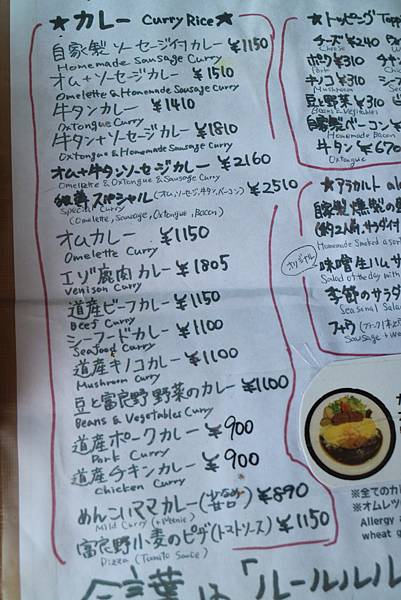 ★カレー Curry Rice★
自家製ソーセージ付カレー ¥1150
Homemade Sausage Curry
オム+ソーセージカレー ¥1510
Omelette & Homemade Sausage Curry
牛タンカレー ¥1410
Oxtongue Curry
牛タン+ソーセージカレー ¥1810
Oxtongue & Homemade Sausage Curry
オム+牛タンソーセージカレー ¥2160
Omelette & Oxtongue & Sausage Curry
スペシャル(オム,ソーセージ,牛タン,ベーコン) ¥2510
Special Curry
(Omelette, Sausage, Oxtongue, Bacon)
オムカレー ¥1150
Omelette Curry
エゾ鹿肉カレー ¥1805
Venison Curry
道産ビーフカレー ¥1150
Beef Curry
シーフードカレー ¥1100
Seafood Curry
道産キノコカレー ¥1100
Mushroom Curry
豆と富良野野菜のカレー ¥1100
Beans & Vegetables Curry
道産ポークカレー ¥900
Pork Curry
道産チキンカレー ¥900
Chicken Curry
めんこいママカレー(少なめ甘口) ¥890
Mild Curry
富良野小麦のピザ(トマトソース) ¥1150
Pizza (Tomato Sauce)
合言葉は「ルールルル
★トッピング Topp
チーズ ¥240
Cheese
ポーク ¥310
Pork
キノコ ¥310
Mushroom
豆と野菜 ¥310
Beans & Vegetables
自家製ベーコン
Homemade Bacon
牛タン ¥670
Oxtongue
★アラカルト
自家製燻製の
(約2人前、サラダ付
Homemade Smoked
オリジナル
味噌生ハムサ
Salad of the day with
季節のサラダ
Seasonal Salad
Sausage +
※全ての
※オムレツ
Allergy
wheat